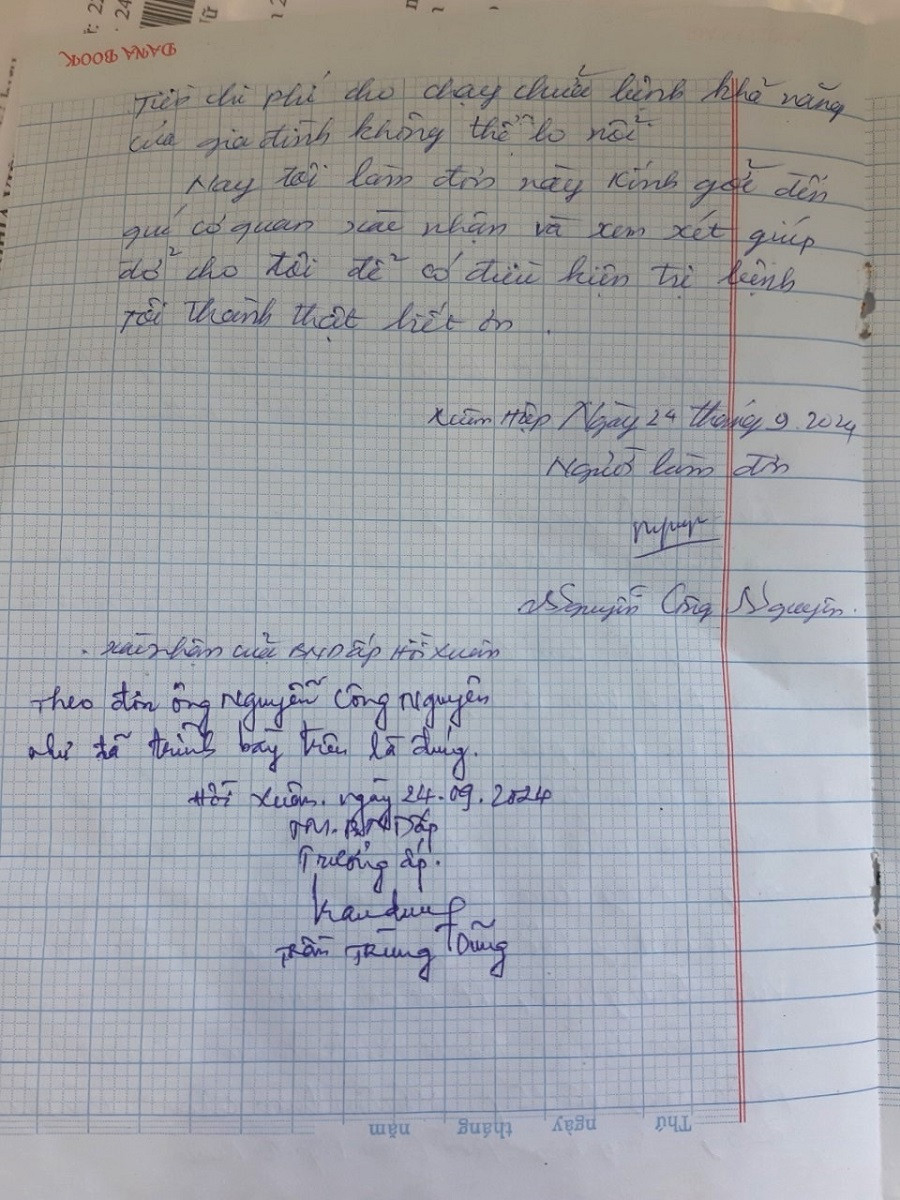 DANA BOOK
Tiếp chi phí cho chạy chữa bệnh khả năng
của gia đình không thể lo nổi
Nay tôi làm đơn này Kính gởi đến
quí cơ quan xác nhận và xem xét giúp
dở cho tôi để có điều kiện trị bệnh
Tôi thành thật biết ơn.
Xuân Hiệp Ngày 24 tháng 9. 2024
Người làm đơn
Nguyễn Công Nguyên.
xác nhận của BND ấp Hồi Xuân
Theo đơn ông Nguyễn Công Nguyên
như đã trình bày trên là đúng.
Hồi Xuân. ngày 24.09.2024
TM. BND ấp
Trưởng ấp.
Trần Trung Dũng
Thứ ngày tháng năm